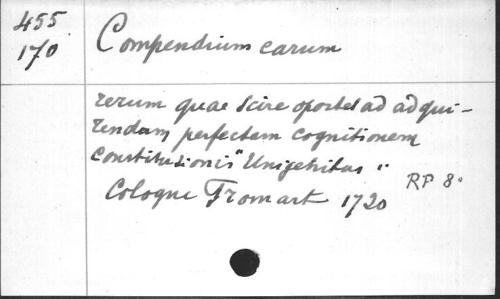 455
170
Compendium earum
rerum quae scire oportet ad adqui-
rendam perfectam cognitionem
constitutionis "Unigenitus"
RP 8°
Cologne Fromart 1720